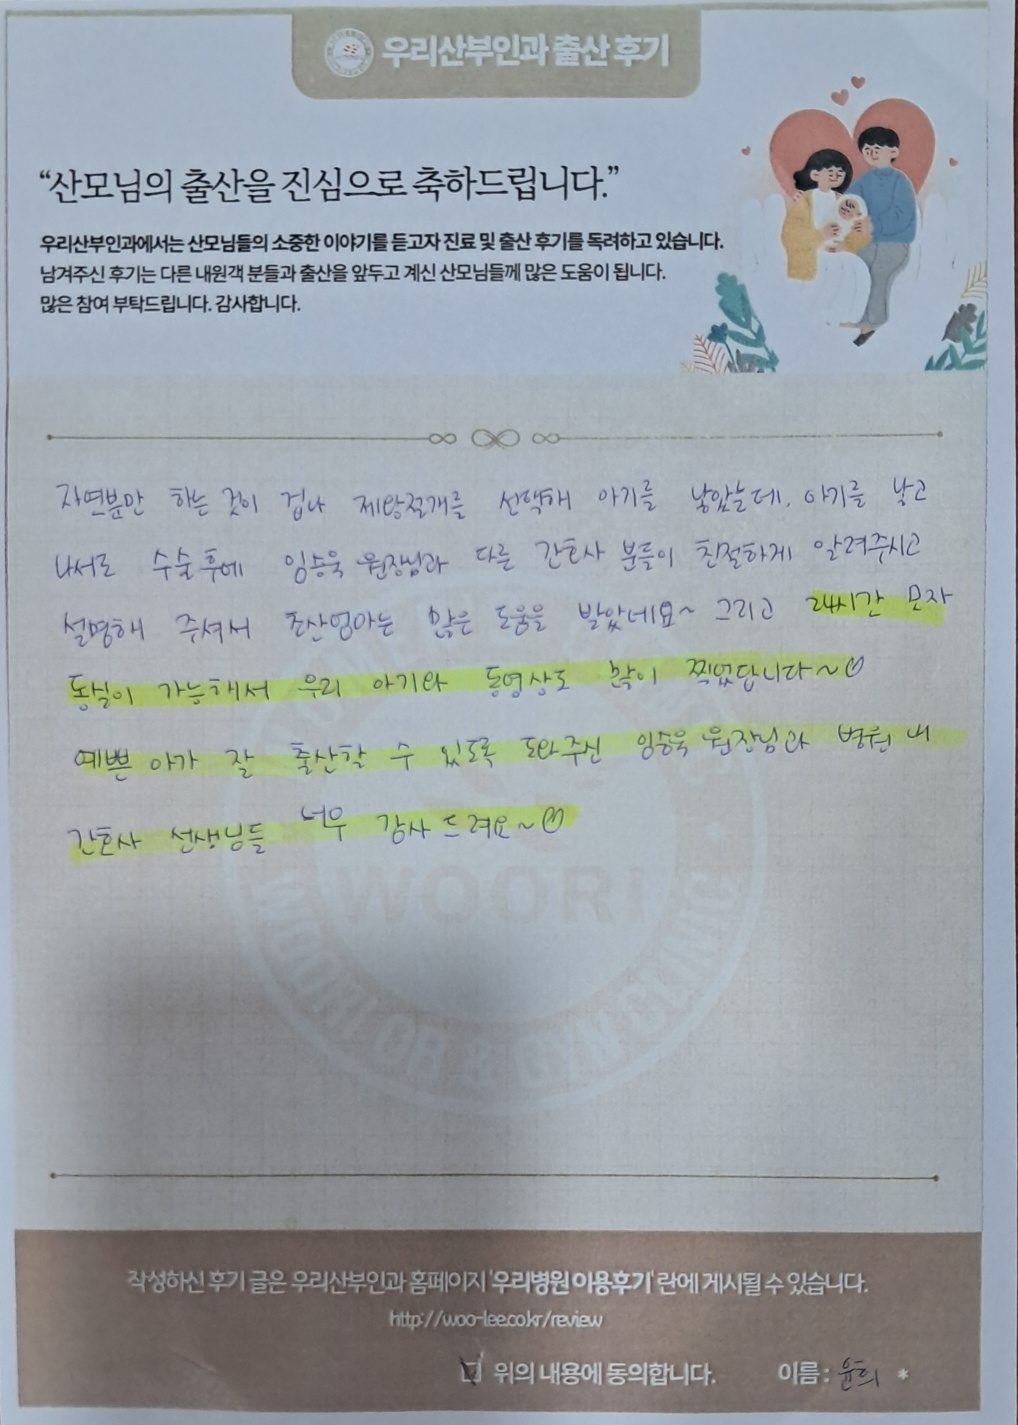 우리산부인과 출산 후기
“산모님의 출산을 진심으로 축하드립니다.”
우리산부인과에서는 산모님들의 소중한 이야기를 듣고자 진료 및 출산 후기를 독려하고 있습니다.
남겨주신 후기는 다른 내원객 분들과 출산을 앞두고 계신 산모님들께 많은 도움이 됩니다.
많은 참여 부탁드립니다. 감사합니다.
자연분만 하는 것이 겁나 제왕절개를 선택해 아기를 낳았는데, 아기를 낳고
나서도 수술후에 임승욱 원장님과 다른 간호사 분들이 친절하게 알려주시고
설명해 주셔서 초산엄마는 많은 도움을 받았네요~ 그리고 24시간 모자
동실이 가능해서 우리 아기와 동영상도 많이 찍었답니다~♡
예쁜 아가 잘 출산할 수 있도록 도와주신 임승욱 원장님과 병원 내
간호사 선생님들 너무 감사드려요~♡
WOORI
WOORI OB & GYN CLINIC
작성하신 후기 글은 우리산부인과 홈페이지 '우리병원 이용후기' 란에 게시될 수 있습니다.
http://woo-lee.co.kr/review
위의 내용에 동의합니다. 이름 : 윤희 *